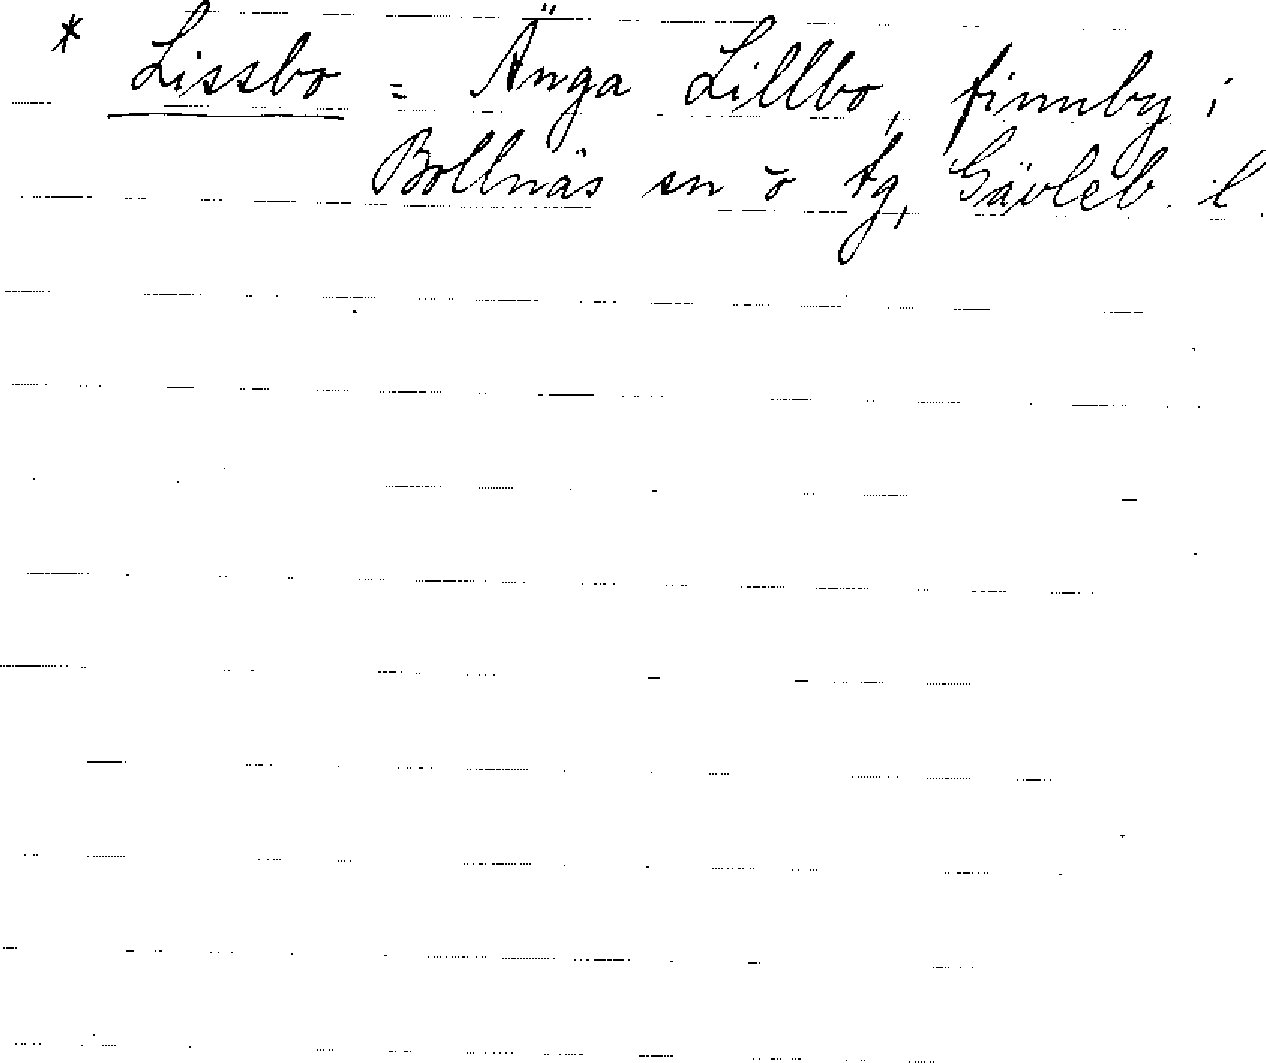 * Lissbo = Änga Lillbo, finnby i
Bollnäs sn o tg, Gävleb. l.